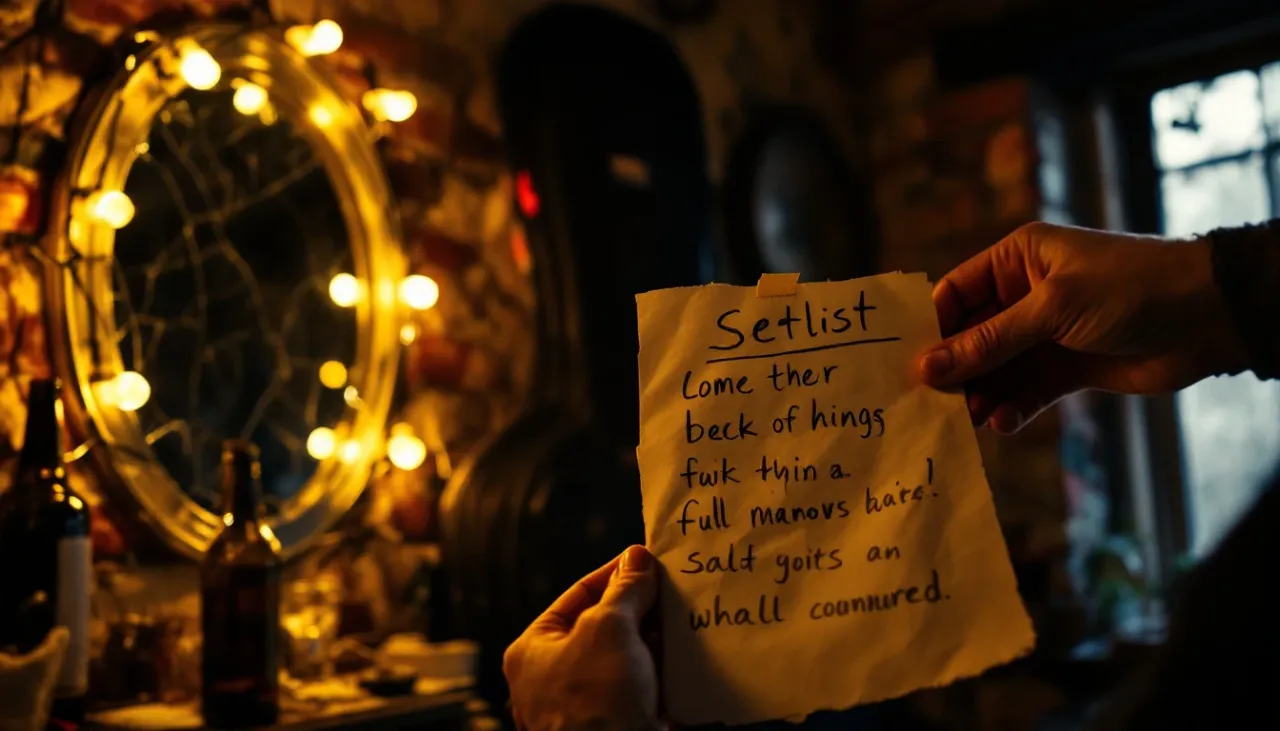 Setlist
Lome ther
beck of hings
fwik thin a.
full manovs baits!
salt yoits an
whall counnured.